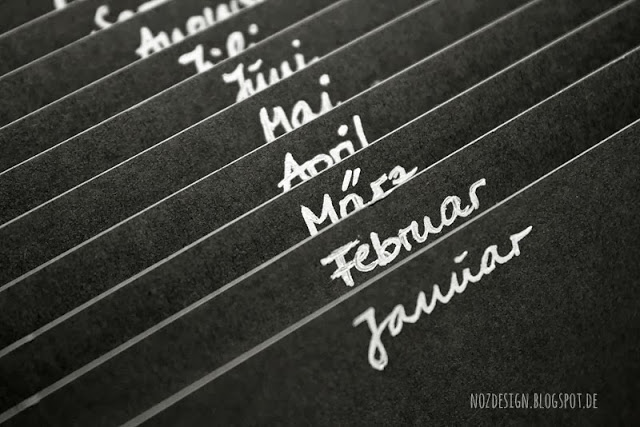 August
Juli
Juni
Mai
April
März
Februar
Januar
NOZDESIGN.BLOGSPOT.DE